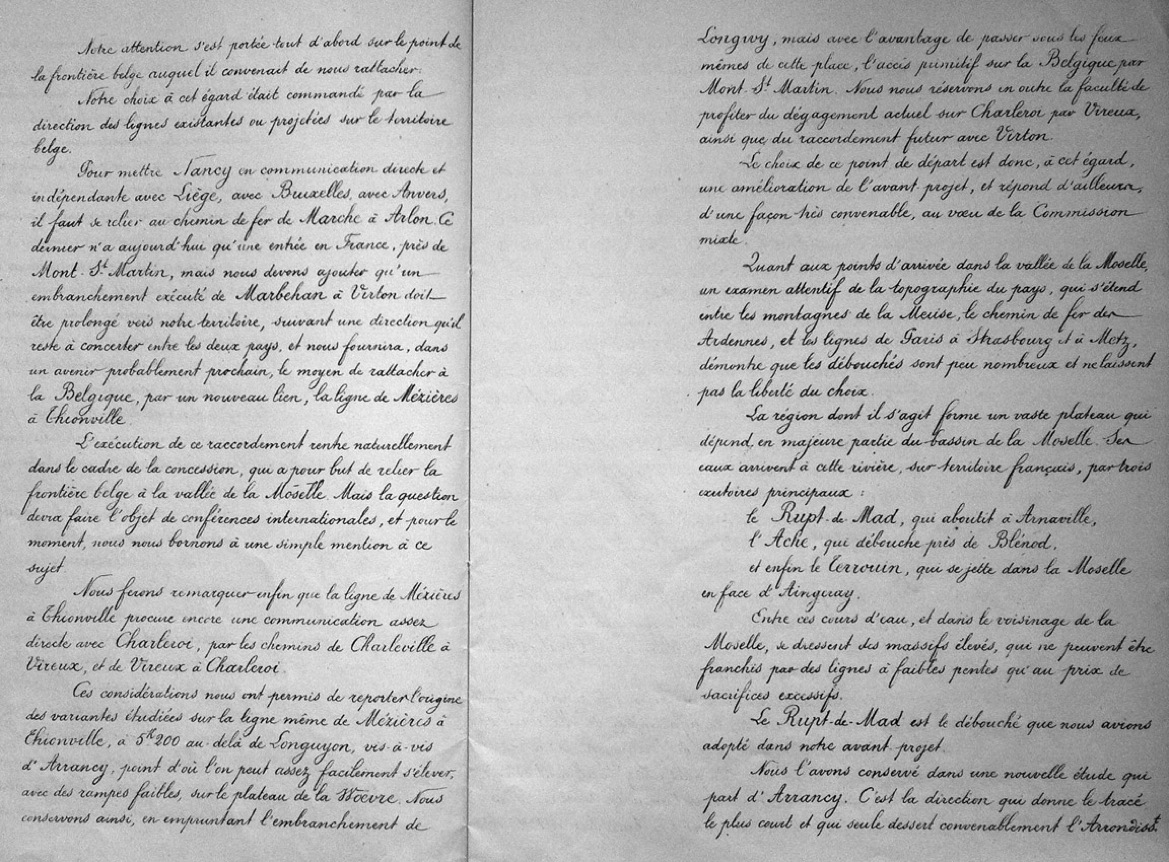 Notre attention s'est portée tout d'abord sur le point de
la frontière belge auquel il convenait de nous rattacher.
Notre choix à cet égard était commandé par la
direction des lignes existantes ou projetées sur le territoire
belge.
Pour mettre Nancy en communication directe et
indépendante avec Liège, avec Bruxelles, avec Anvers,
il faut se relier au chemin de fer de Marche à Arlon. Ce
dernier n'a aujourd'hui qu'une entrée en France, près de
Mont-St Martin, mais nous devons ajouter qu'un
embranchement exécuté de Marbehan à Virton doit
être prolongé vers notre territoire, suivant une direction qu'il
reste à concerter entre les deux pays, et nous fournira, dans
un avenir probablement prochain, le moyen de rattacher à
la Belgique, par un nouveau lien, la ligne de Mézières
à Thionville.
L'exécution de ce raccordement rentre naturellement
dans le cadre de la concession, qui a pour but de relier la
frontière belge à la vallée de la Moselle. Mais la question
devra faire l'objet de conférences internationales, et pour le
moment, nous nous bornons à une simple mention à ce
sujet.
Nous ferons remarquer enfin que la ligne de Mézières
à Thionville procure encore une communication assez
directe avec Charleroi, par les chemins de Charleville à
Vireux, et de Vireux à Charleroi.
Ces considérations nous ont permis de reporter l'origine
des variantes étudiées sur la ligne même de Mézières à
Thionville, à 5K200 au-delà de Longuyon, vis-à-vis
d'Arrancy, point d'où l'on peut assez facilement s'élever,
avec des rampes faibles, sur le plateau de la Woëvre. Nous
conservons ainsi, en empruntant l'embranchement de
Longwy, mais avec l'avantage de passer sous les feux
mêmes de cette place, l'accès primitif sur la Belgique par
Mont-St Martin. Nous nous réservons en outre la faculté de
profiter du dégagement actuel sur Charleroi par Vireux,
ainsi que du raccordement futur avec Virton.
Le choix de ce point de départ est donc, à cet égard,
une amélioration de l'avant projet, et répond d'ailleurs,
d'une façon très convenable, au vœu de la Commission
mixte.
Quant aux points d'arrivée dans la vallée de la Moselle,
un examen attentif de la topographie du pays, qui s'étend
entre les montagnes de la Meuse, le chemin de fer des
Ardennes, et les lignes de Paris à Strasbourg et à Metz,
démontre que les débouchés sont peu nombreux et ne laissent
pas la liberté du choix.
La région dont il s'agit forme un vaste plateau qui
dépend, en majeure partie du bassin de la Moselle. Ses
eaux arrivent à cette rivière, sur territoire français, par trois
exutoires principaux :
le Rupt-de-Mad, qui aboutit à Arnaville,
l'Ache, qui débouche près de Blénod,
et enfin le Terrouin, qui se jette dans la Moselle
en face d'Aingeray.
Entre ces cours d'eau, et dans le voisinage de la
Moselle, se dressent des massifs élevés, qui ne peuvent être
franchis par des lignes à faibles pentes qu'au prix de
sacrifices excessifs.
Le Rupt-de-Mad est le débouché que nous avions
adopté dans notre avant projet.
Nous l'avons conservé dans une nouvelle étude qui
part d'Arrancy. C'est la direction qui donne le tracé
le plus court et qui seule dessert convenablement l'Arrondisst